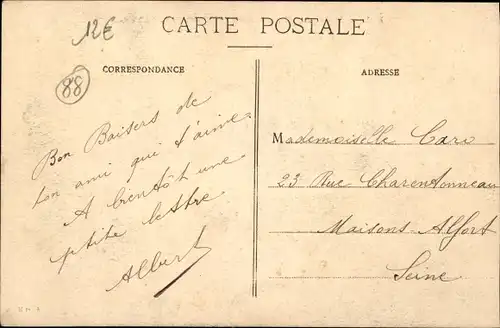 12€
CARTE POSTALE
88
CORRESPONDANCE
ADRESSE
Bon Baisers de
ton ami qui t'aime
A bientôt une
ptite lettre
Albert
Mademoiselle Caro
23 Rue Charentonneau
Maisons Alfort
Seine